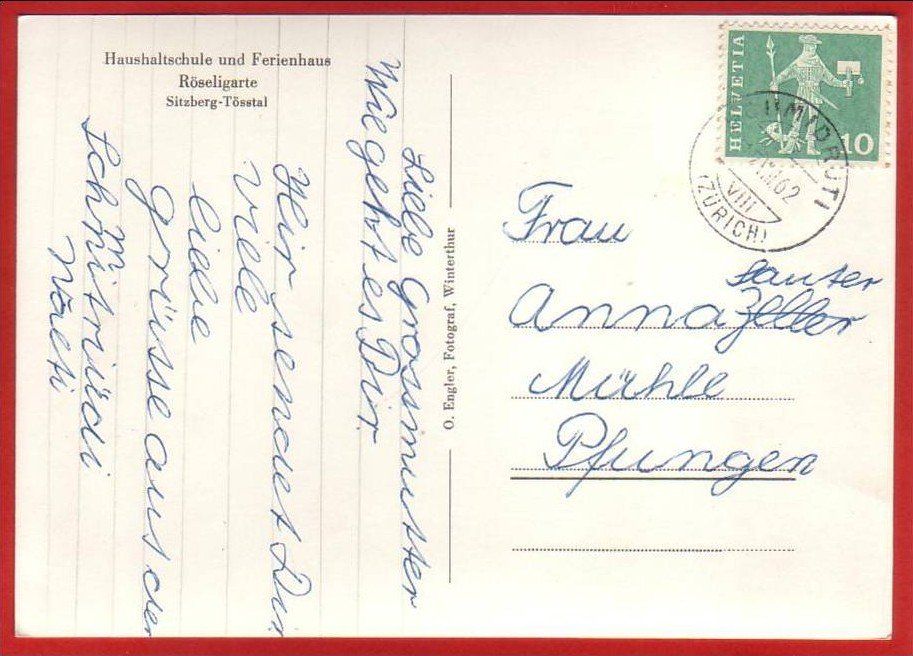 Haushaltschule und Ferienhaus
Röseligarte
Sitzberg-Tösstal
Liebe Grosmutter
Wie geht es Dir
Hir sendet Dir
viele
liebe
grüsse aus der
Schmitrüdi
Köbeti
O. Engler, Fotograf, Winterthur
HELVETIA
10
SCHMIDRÜTI
VIII 62
(ZÜRICH)
Frau
Sauter
Anna Zeller
Mühle
Pfungen